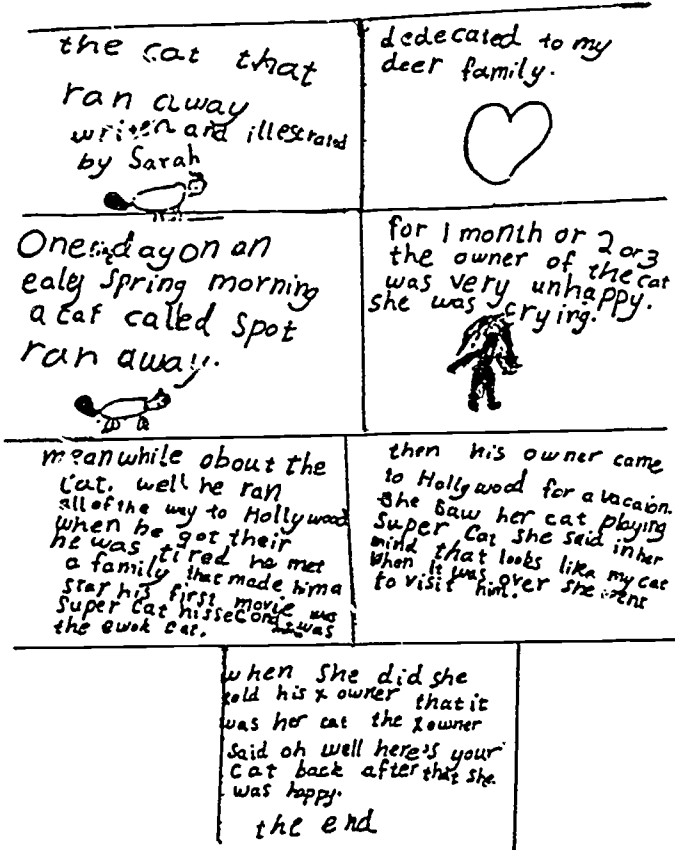 the cat that
ran away
writen and illestrated
by Sarah
dedecated to my
deer family.
One day on an
ealey spring morning
a cat called Spot
ran away.
for 1 month or 2 or 3
the owner of the cat
was very unhappy.
she was crying.
meanwhile about the
cat. well he ran
all of the way to Hollywood
when he got their
he was tired he met
a family that made him a
star his first movie was
super cat his second was
the ewok cat.
then his owner came
to Hollywood for a vacaion.
she saw her cat playing
super cat she said in her
mind that looks like my cat
when it was over she went
to visit him.
when she did she
told his x owner that it
was her cat the x owner
said oh well here's your
cat back after that she
was happy.
the end